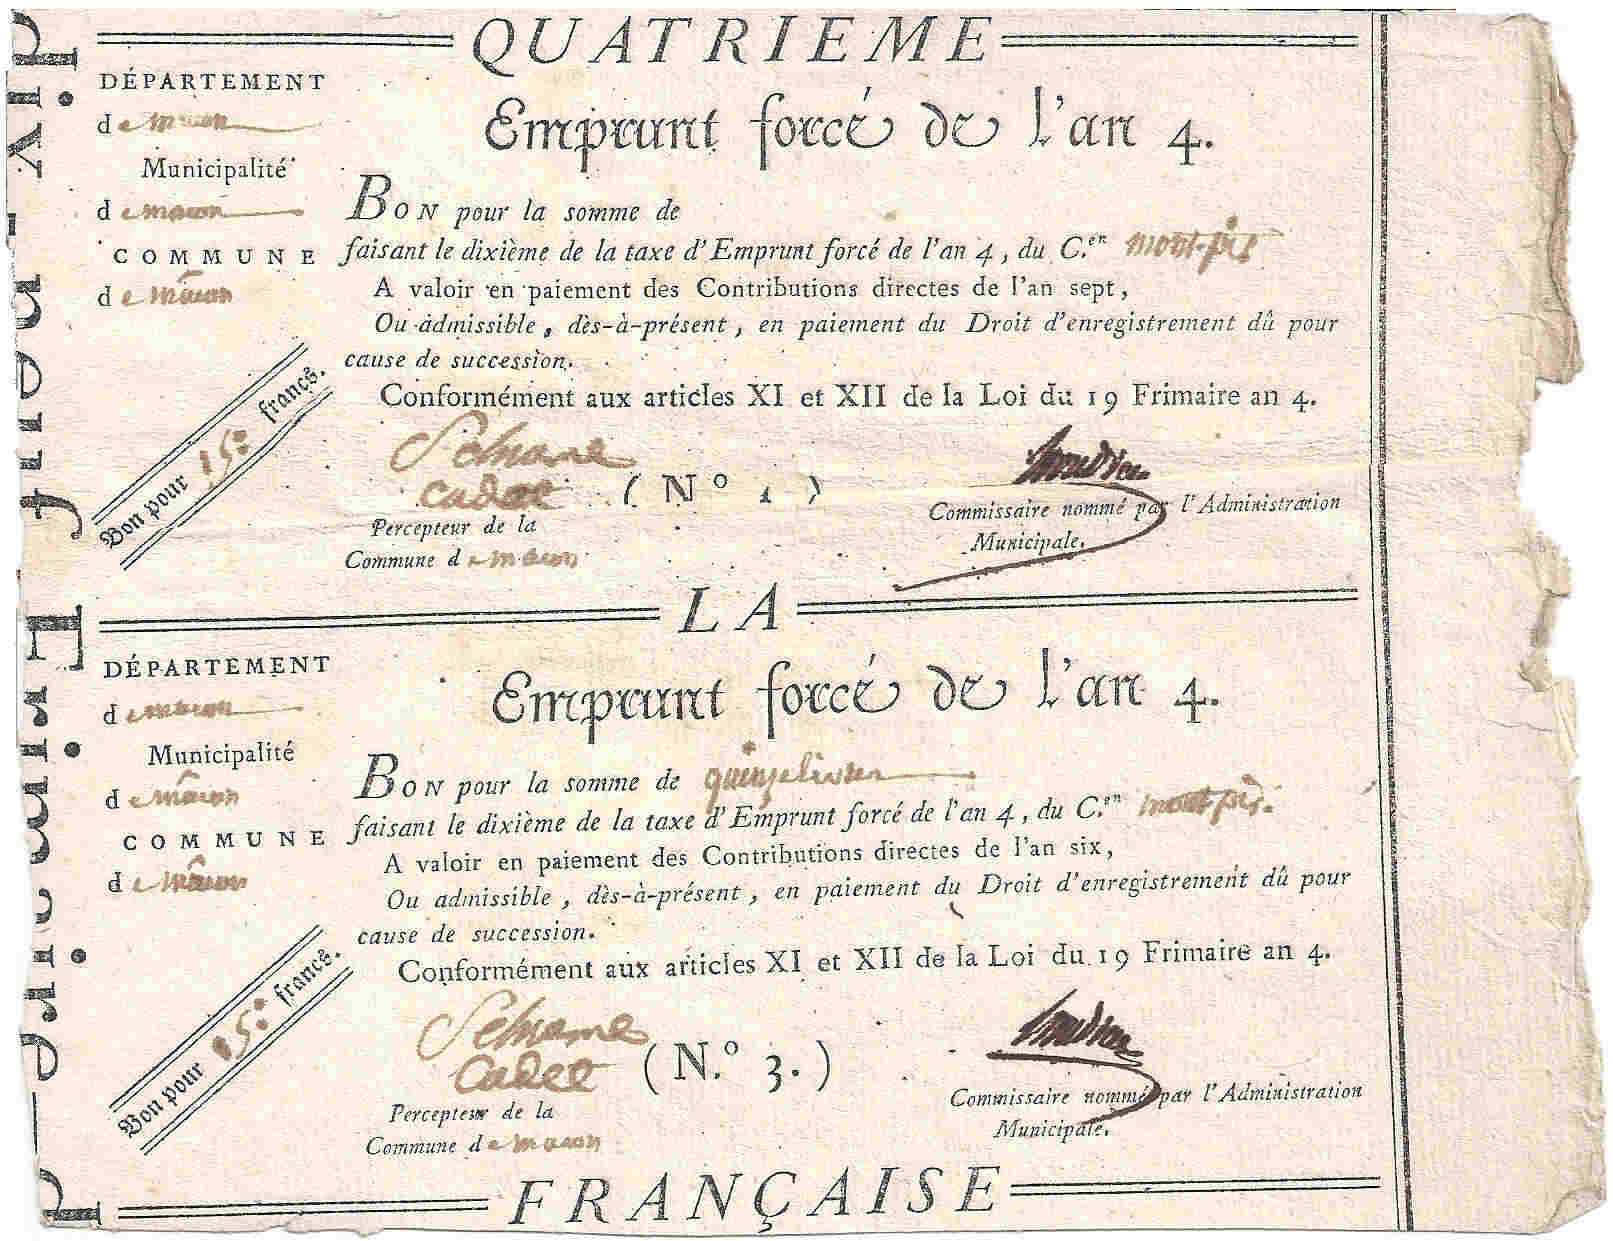 QUATRIEME
DÉPARTEMENT
de macon
Municipalité
de macon
COMMUNE
de mâcon
Emprunt forcé de l'an 4.
BON pour la somme de
faisant le dixième de la taxe d'Emprunt forcé de l'an 4, du C.en
A valoir en paiement des Contributions directes de l'an sept,
Ou admissible, dès-à-présent, en paiement du Droit d'enregistrement dû pour
cause de succession.
Conformément aux articles XI et XII de la Loi du 19 Frimaire an 4.
Bon pour 15: francs.
cadet
(N°
Percepteur de la
Commune de macon
Commissaire nommé par l'Administration
Municipale.
LA
DÉPARTEMENT
de macon
Municipalité
de mâcon
COMMUNE
de mâcon
Emprunt forcé de l'an 4.
BON pour la somme de quinze livres
faisant le dixième de la taxe d'Emprunt forcé de l'an 4, du C.en
A valoir en paiement des Contributions directes de l'an six,
Ou admissible, dès-à-présent, en paiement du Droit d'enregistrement dû pour
cause de succession.
Conformément aux articles XI et XII de la Loi du 19 Frimaire an 4.
Bon pour 15: francs.
Cadet
(N.° 3.)
Percepteur de la
Commune de macon
Commissaire nommé par l'Administration
Municipale.
FRANÇAISE